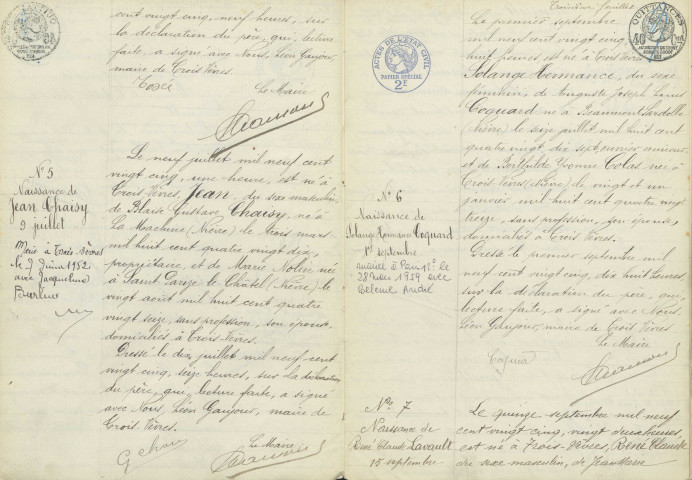 cent vingt cinq, neuf heures, sur
la déclaration du père, qui, lecture
faite, a signé avec Nous, Léon Gaujour,
maire de Trois Vèvres.
Le Maire
N° 5
Naissance de
Jean Chaisy
9 juillet
Marié à
le 7 Juin 1952
avec Jacqueline
Le neuf juillet mil neuf cent
vingt cinq, une heure, est né à
Trois Vèvres, Jean, du sexe masculin,
de Blaise Gustave Chaisy, né à
La Machine (Nièvre) le trois mars
mil huit cent quatre vingt dix,
propriétaire, et de Marie née
à Saint Parize le Châtel (Nièvre) le
vingt août mil huit cent quatre
vingt seize, sans profession, son épouse,
domiciliés à Trois Vèvres.
Dressé le dix juillet mil neuf cent
vingt cinq, seize heures, sur la déclaration
du père, qui, lecture faite, a signé
avec Nous, Léon Gaujour, maire de
Trois Vèvres.
Le Maire
QUITTANCES
ACTES DE L'ÉTAT CIVIL
PAPIER SPÉCIAL
2F
Le premier septembre
mil neuf cent vingt cinq,
huit heures est né à Trois Vèvres
Solange Hermance, du sexe
féminin, de Auguste Joseph Louis
Coquard né à Beaumont Sardolle
(Nièvre) le seize juillet mil huit cent
quatre vingt dix sept,
et de Yvonne Colas née à
Trois Vèvres (Nièvre) le vingt et un
janvier mil huit cent quatre vingt
treize, sans profession, son épouse,
domiciliés à Trois Vèvres.
Dressé le premier septembre mil
neuf cent vingt cinq, dix huit heures,
sur la déclaration du père, qui,
lecture faite, a signé avec Nous
Léon Gaujour, maire de Trois Vèvres
Le Maire
N° 6
Naissance de
Solange Hermance Coquard
1er septembre
N° 7
Naissance de
René Claude Lavault
15 septembre
Le quinze septembre mil neuf
cent vingt cinq, vingt deux heures,
est né à Trois Vèvres, René Claude
du sexe masculin, de Jean Marie